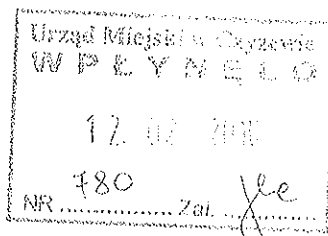 Urząd Miejski w Czyżewie
WPŁYNĘŁO
12. 02
NR 780 Zał.